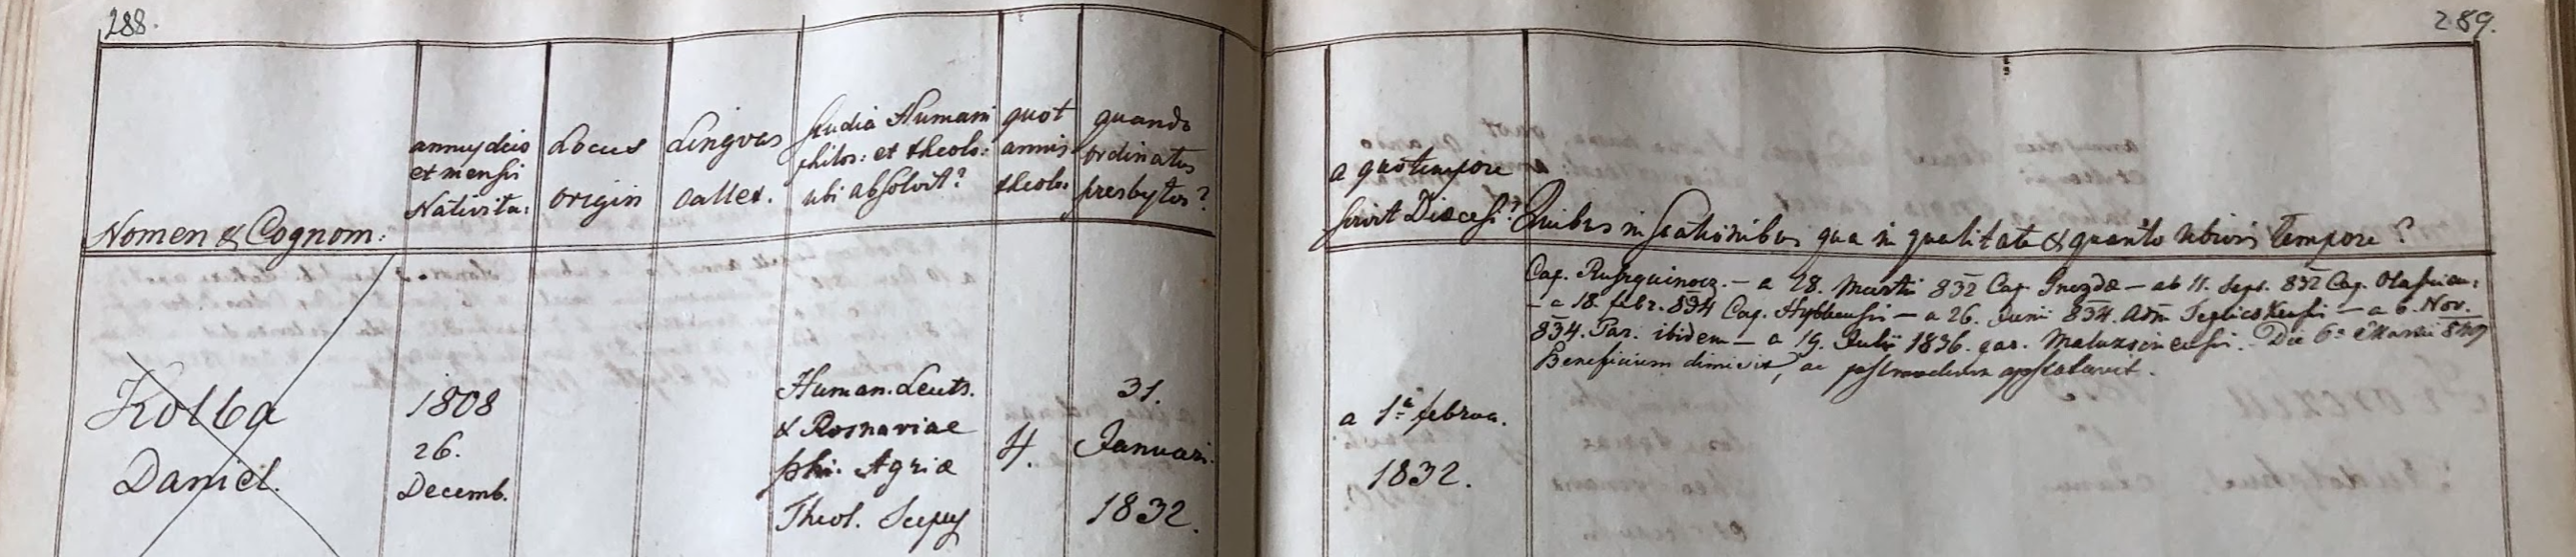 288.
289.
Nomen & Cognom:
anny dies
et mensis
Nativita:
Locus
origin
Linguas
callet.
studia Humani
philos: et theolo:
ubi absolvit?
quot
annis
theolo:
quando
ordinatus
presbyter?
a quo tempore
servit Diœcesi?
Quibus in stationibus qua in qualitate & quanto ubivis tempore?
Kolba
Daniel.
1808
26.
Decemb.
Human. Leuts.
& Rosnaviae
phi. Agriæ
Theol. Scepus
4.
31.
Januari.
1832.
a 1ª februa.
1832.
Cap. - a 28. Martii 832 Cap. Gnezdæ - ab 11. Sept. 832 Cap. Olassien:
- a 18. febr. 834 Cap. Hybbensis - a 26. Junii 834. Adm Teplicskensis - a 6. Nov.
834. Par. ibidem - a 19. Julii 1836. par. Maluzsinensis. Die 6ª Martii
Beneficium dimisit, ac postmodum apostatavit.